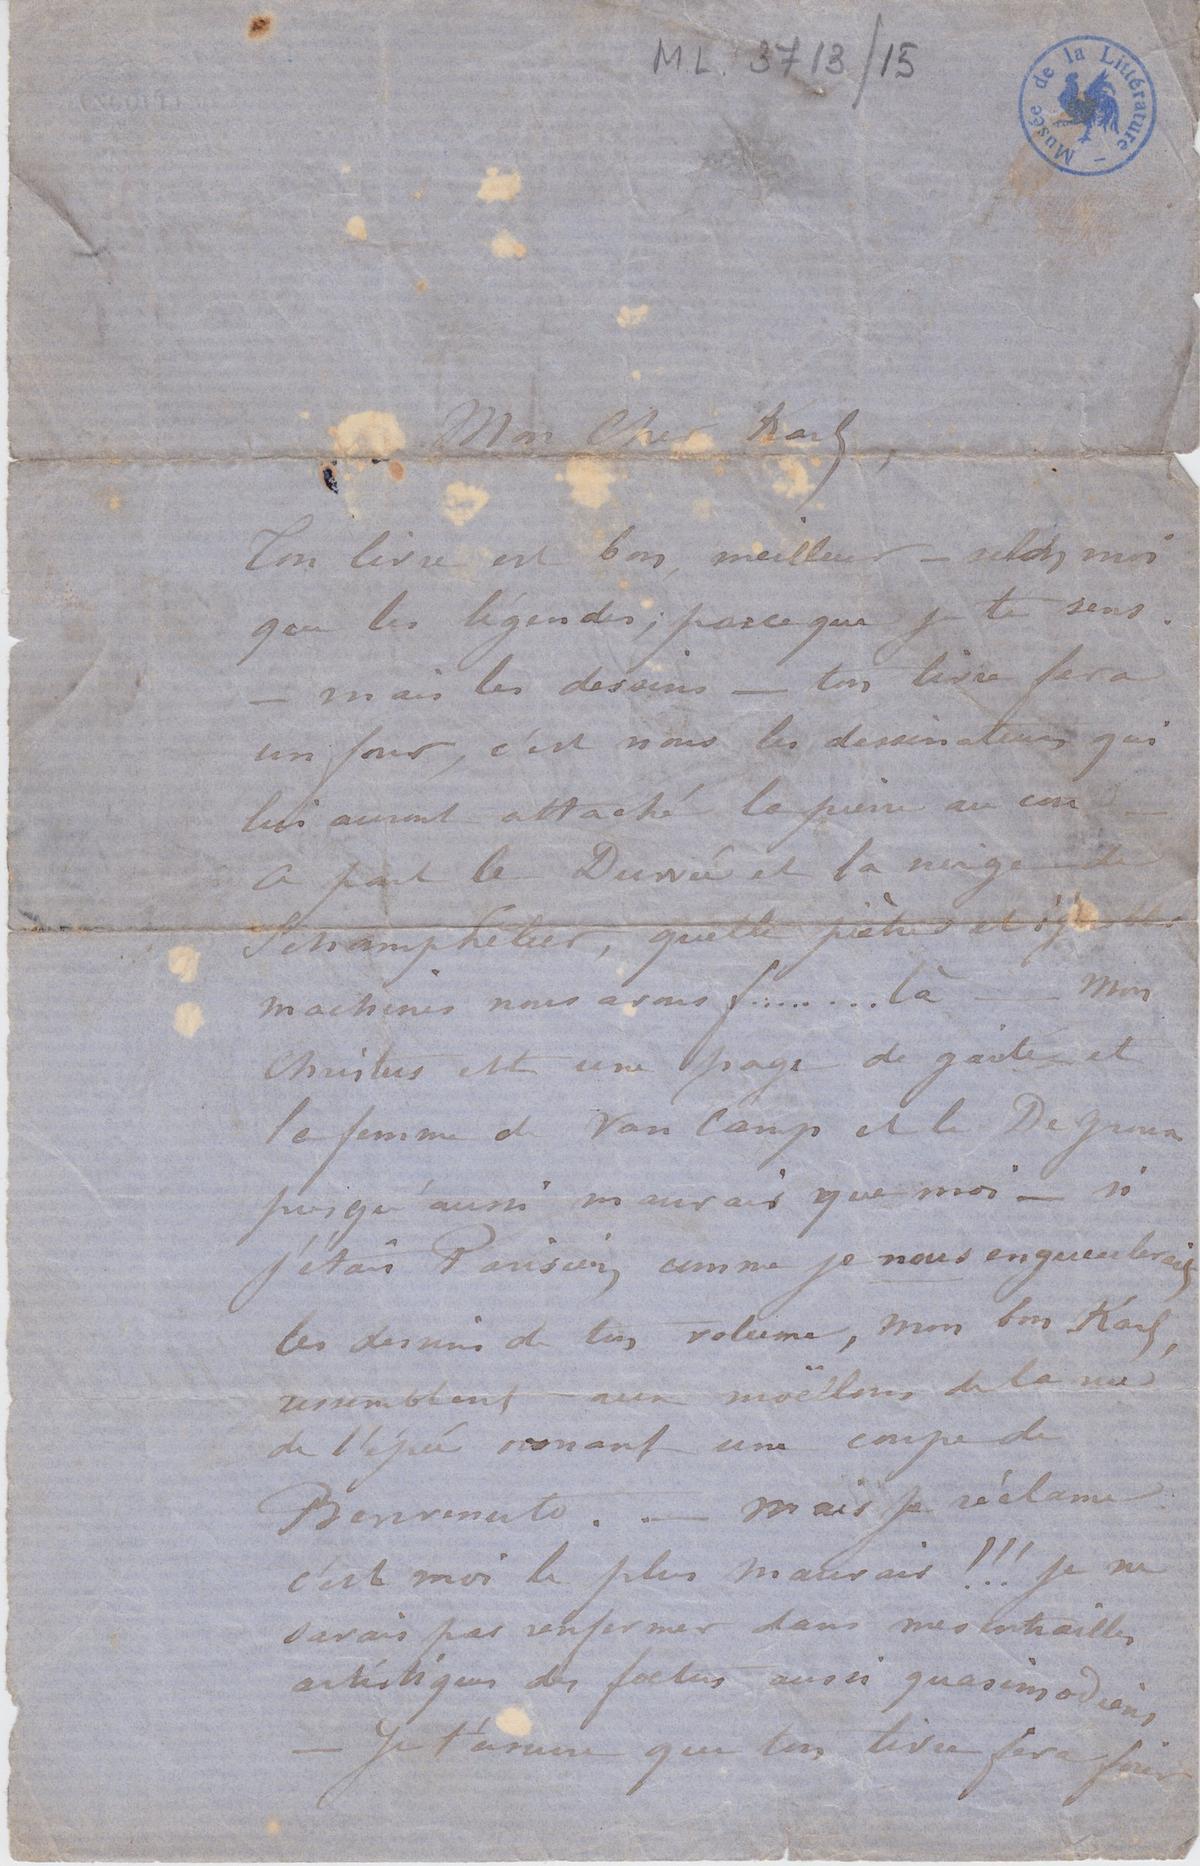 M.L. 3713/15
Musée de la Littérature
Mon Cher Karl,
Ton livre est bon, meilleur — selon moi
que les légendes; parceque je te sens.
— mais les dessins — ton livre fera
un four, c'est nous les dessinateurs qui
lui auront attaché la pierre au cou —
à part le Duwée et la neige de
Schamphelier, quelle piètres et
machines nous avons f........là — Mon
Christus est une page de garde et
la femme de Van Camp et le Degroux
presqu'aussi mauvais que moi — si
j'étais Parisien, comme je nous engueulerais
les dessins de ton volume, mon bon Karl,
ressemblent aux moëllons de la rue
de l'épée ornant une coupe de
Benvenuto. — mais je réclame
c'est moi le plus mauvais !!! je ne
savais pas renfermer dans mes entrailles
artistiques des foetus aussi quasimodiens
— Je t'assure que ton livre fera four